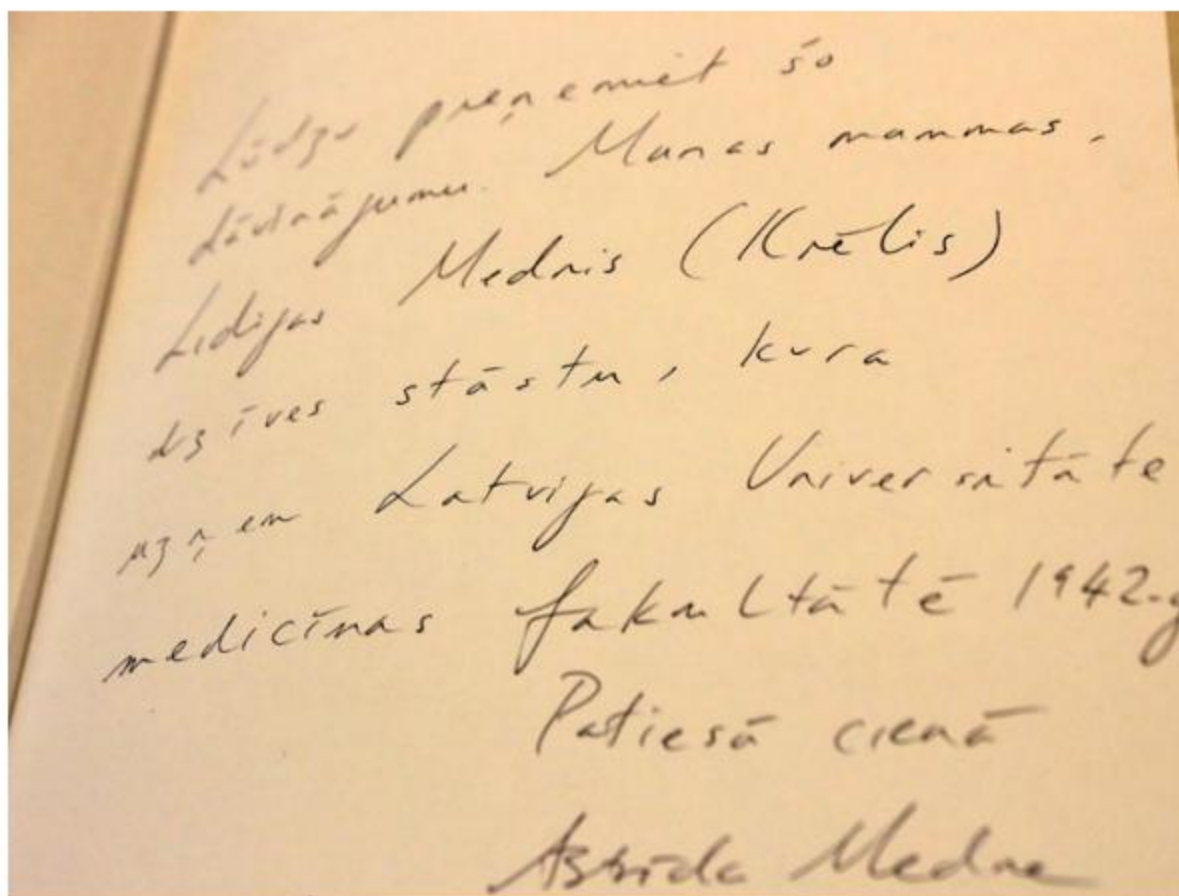 Lūdzu preņemiet šo
dāvinājumu. Manas mammas,
Lidijas Mednis (Krēlis)
dzīves stāstu, kura
uzņem Latvijas Universitāte
medicīnas fakultātē 1942.g
Patiesā cieņā
Astrīda Medne